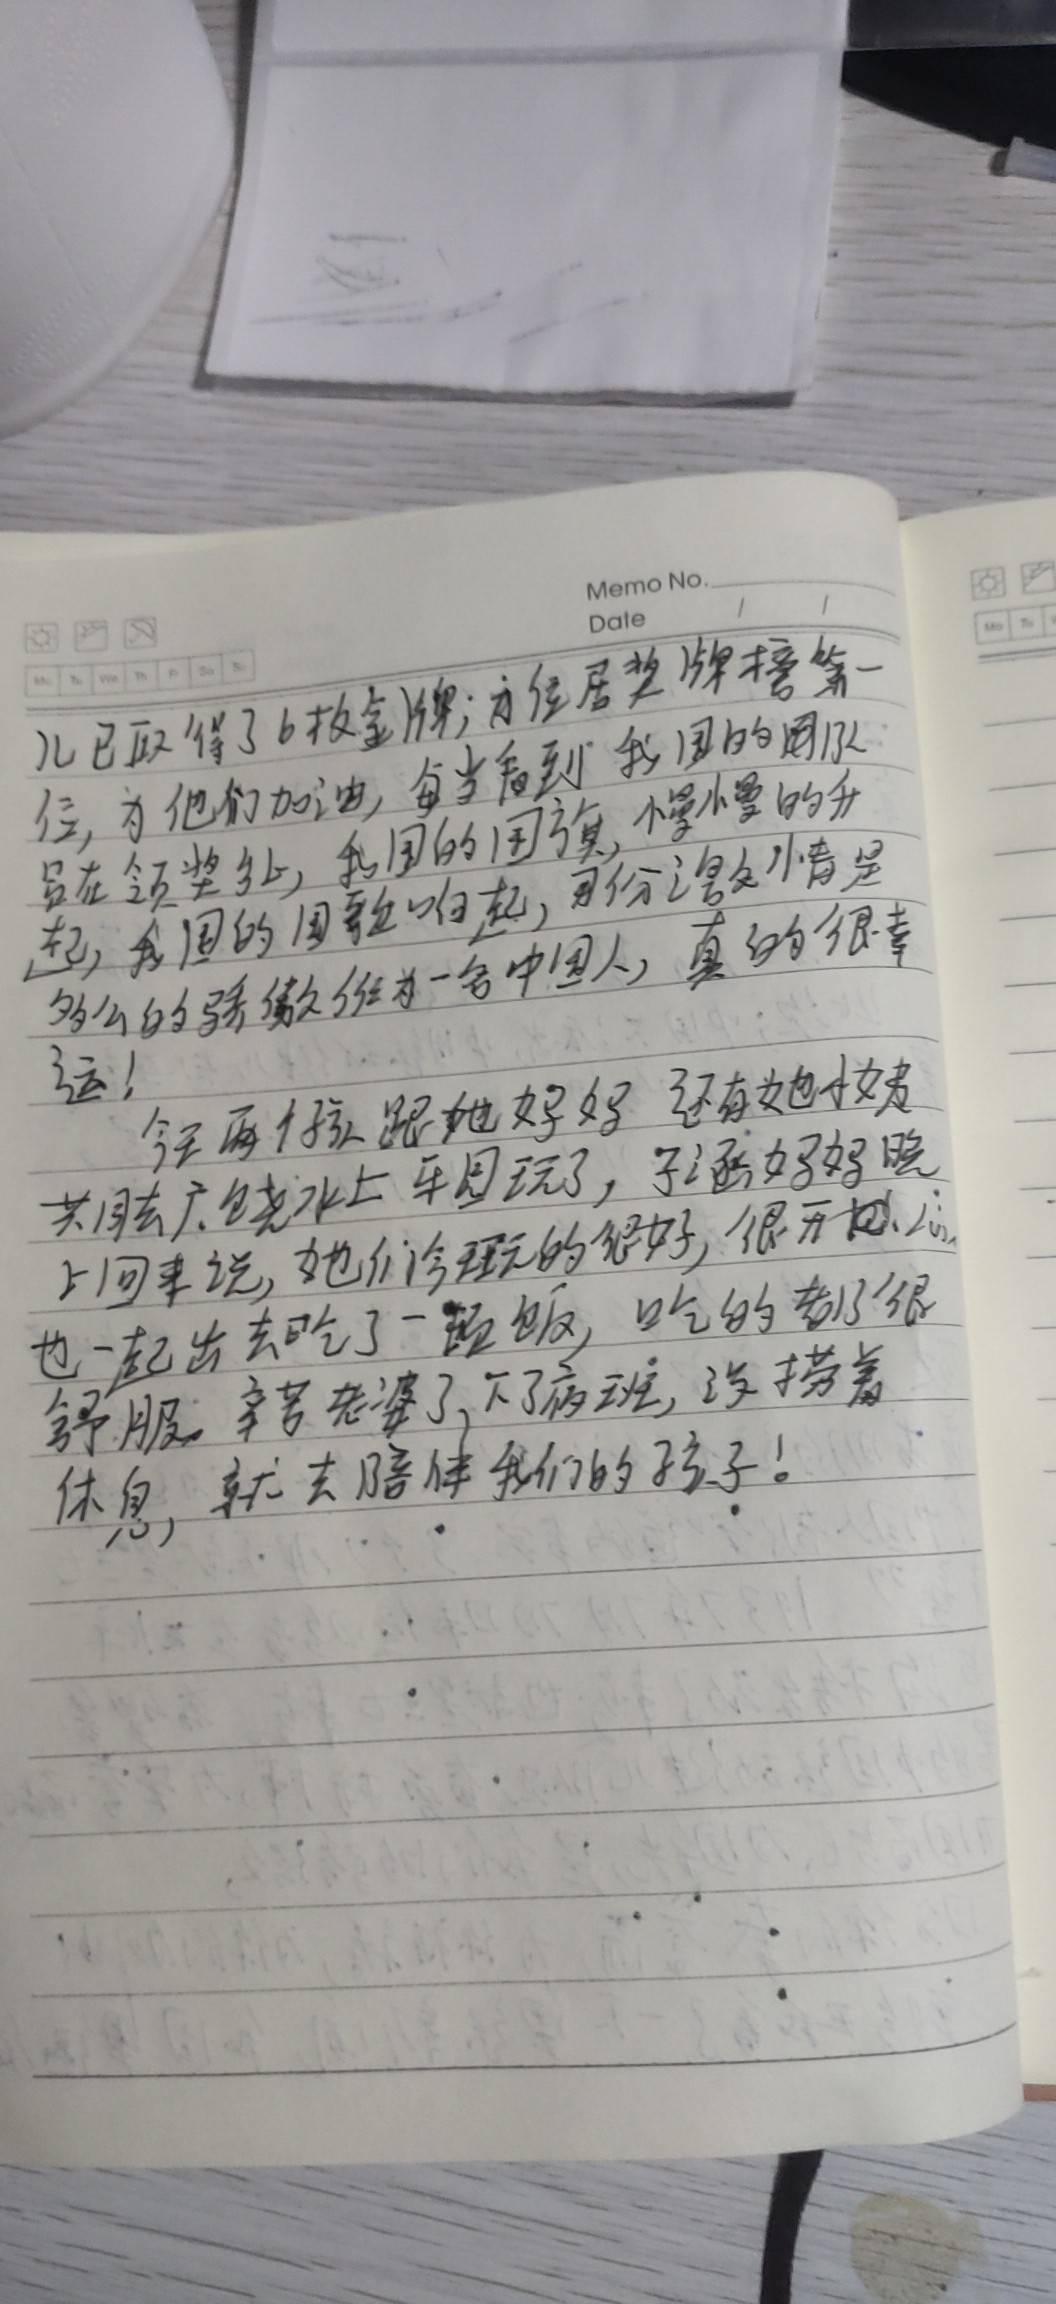 Memo No.
Date / /
Mo Tu We Th Fr Sa Su
Mo Tu
儿已取得了6枚金牌；方位居奖牌榜第一
位，为他们加油，每当看到我国的国队
员在领奖台上，我国的国旗，慢慢的升
起，我国的国歌响起，那份激动心情是
多么的骄傲作为一名中国人，真的很幸
运！
今天两个孩跟她妈妈 还有她小姨
共同去广饶水上乐园玩了，子涵妈妈晚
上回来说，她们今天玩的很好，很开心
也一起出去吃了一顿饭，吃的都很
舒服。辛苦老婆了，下了夜班，没捞着
休息，就去陪伴我们的孩子！